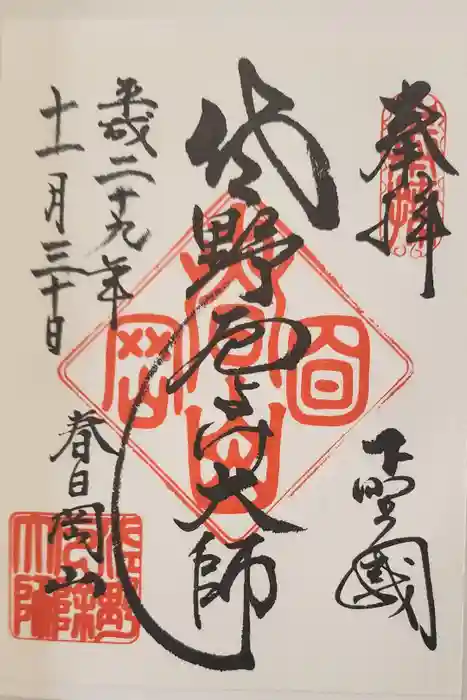 奉拝
下野國
佐野厄よけ大師
平成二十九年
十一月三十日
春日岡山